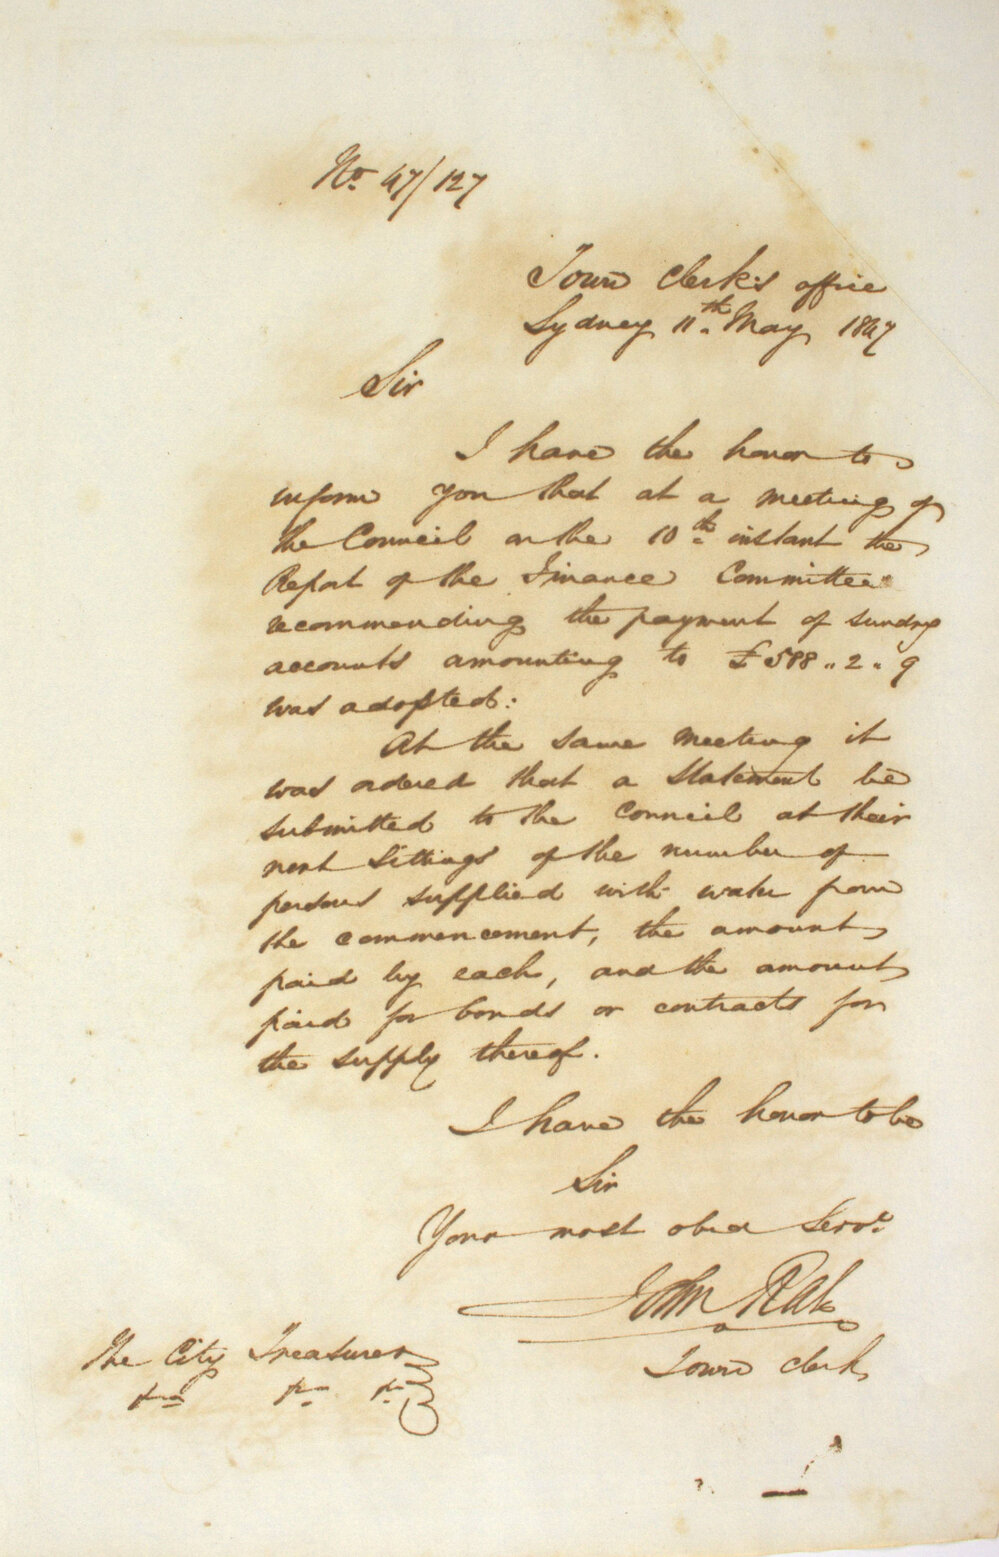 No. 47/127
Town Clerk's office
Sydney 11th. May 1847
Sir
I have the honor to
inform you that at a meeting of
the Council on the 10th instant the
Report of the Finance Committee
recommending the payment of sundry
accounts amounting to £588..2..9
was adopted:
At the same meeting it
was ordered that a Statement be
submitted to the Council at their
next Sittings of the number of
persons supplied with water from
the commencement, the amount
paid by each, and the amount
paid for bonds or contracts for
the supply thereof.
I have the honor to be
Sir
Your most obed Servt.
John Rae
Town Clerk
The City Treasurer